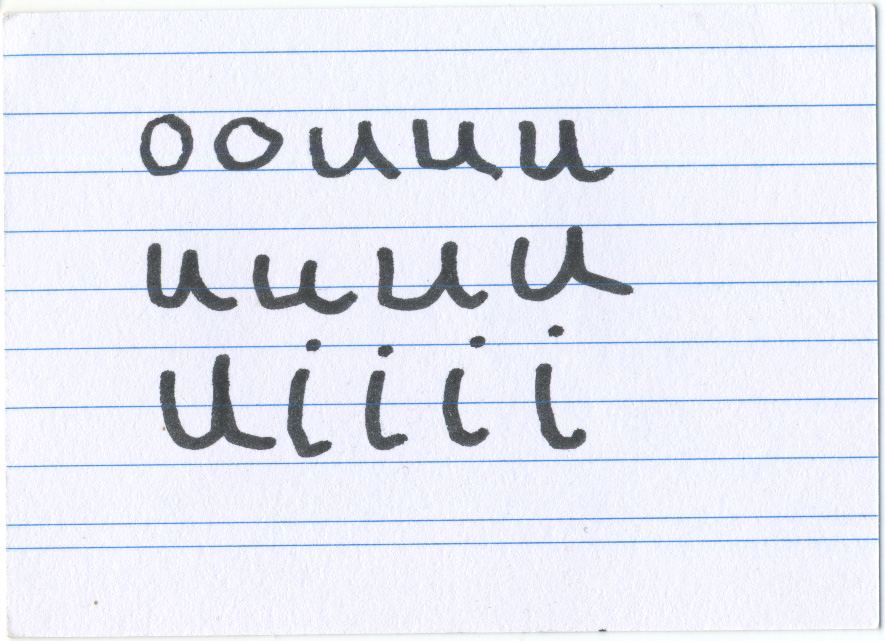 oouuu
uuuu
uiiii